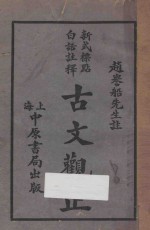 趙㧑郊先生註
新式標點
白話註釋
古文觀止
上海
中原書局出版